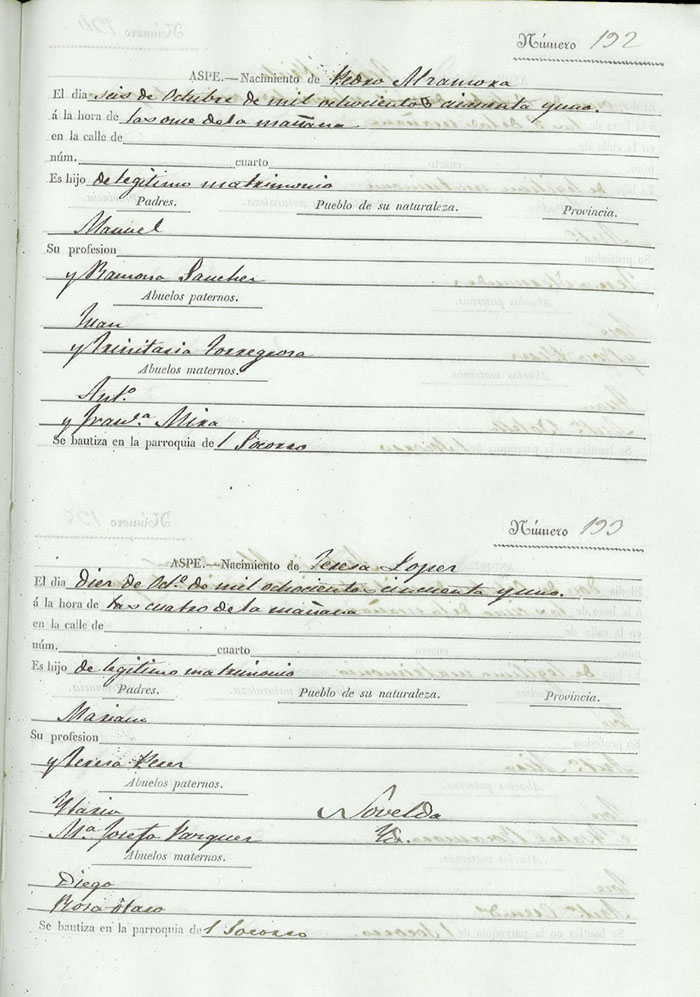 Número 192
ASPE.—Nacimiento de Pedro Alzamora
El dia seis de Octubre de mil ochocientos cincuenta y uno.
á la hora de las once de la mañana
en la calle de
núm. cuarto
Es hijo de legitimo matrimonio
Padres. Pueblo de su naturaleza. Provincia.
Manuel
Su profesion
y Ramona Sanchez
Abuelos paternos.
Juan
y Trinitaria Torregrosa
Abuelos maternos.
Ant.º
y Fran.ca Mira
Se bautiza en la parroquia de l Socorro
Número 193
ASPE.—Nacimiento de Teresa Lopez
El dia Diez de Oct.e de mil ochocientos cincuenta y uno.
á la hora de las cuatro de la mañana
en la calle de
núm. cuarto
Es hijo de legitimo matrimonio
Padres. Pueblo de su naturaleza. Provincia.
Mariano
Su profesion
y Teresa
Abuelos paternos.
Novelda
M.a Josefa Vazquez Yd.
Abuelos maternos.
Diego
Rosa
Se bautiza en la parroquia de l Socorro